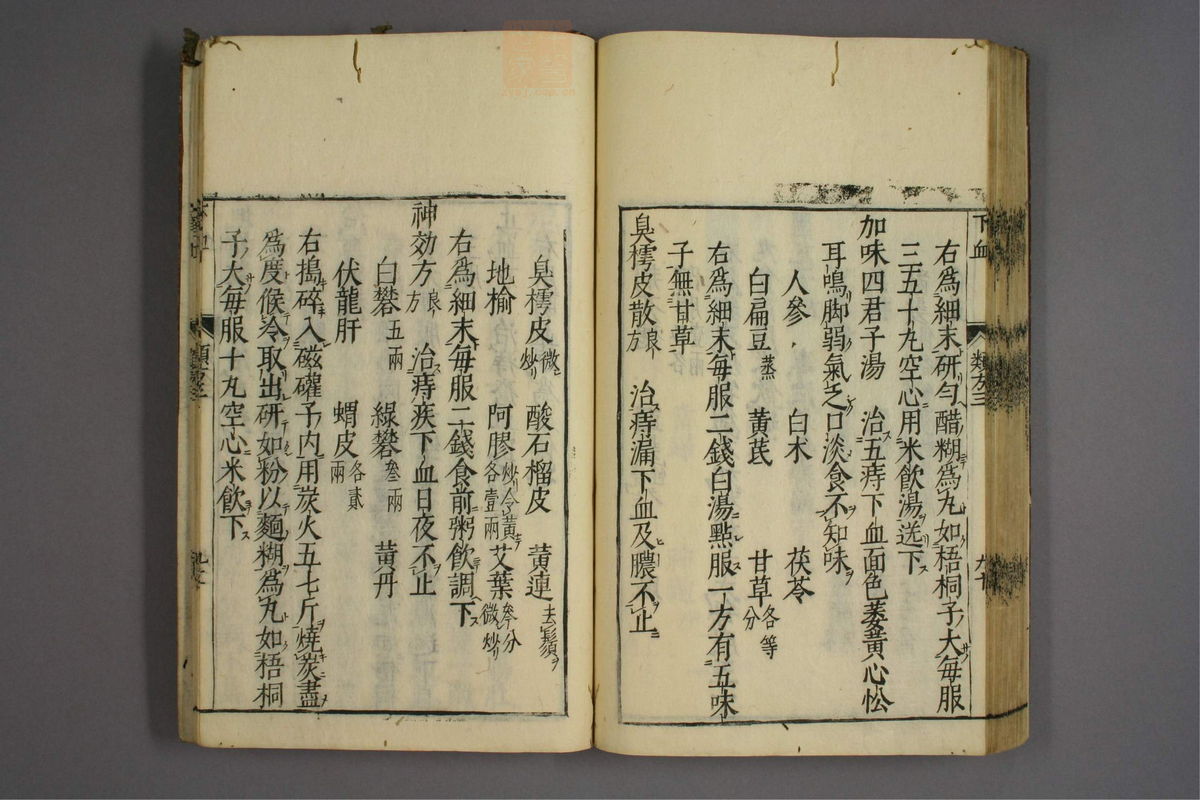 下血
類方三
右為細末研勻醋糊為丸如梧桐子大每服
三五十丸空心用米飲湯送下
加味四君子湯 治五痔下血面色萎黃心忪
耳鳴脚弱氣乏口淡食不知味
人參 白朮 茯苓
白扁豆蒸 黃芪 甘草各等分
右為細末每服二錢白湯點服一方有五味
子無甘草
臭樗皮散良方 治痔漏下血及膿不止
臭樗皮微炒 酸石榴皮 黃連去鬚
地榆 阿膠炒令黃各壹兩 艾葉參分微炒
右為細末每服二錢食前粥飲調下
神効方良方 治痔疾下血日夜不止
白礬五兩 綠礬叁兩 黃丹
伏龍肝 蝟皮各貳兩
右搗碎入磁礶子內用炭火五七斤燒炭盡
為度候冷取出研如粉以麵糊為丸如梧桐
子大每服十丸空心米飲下